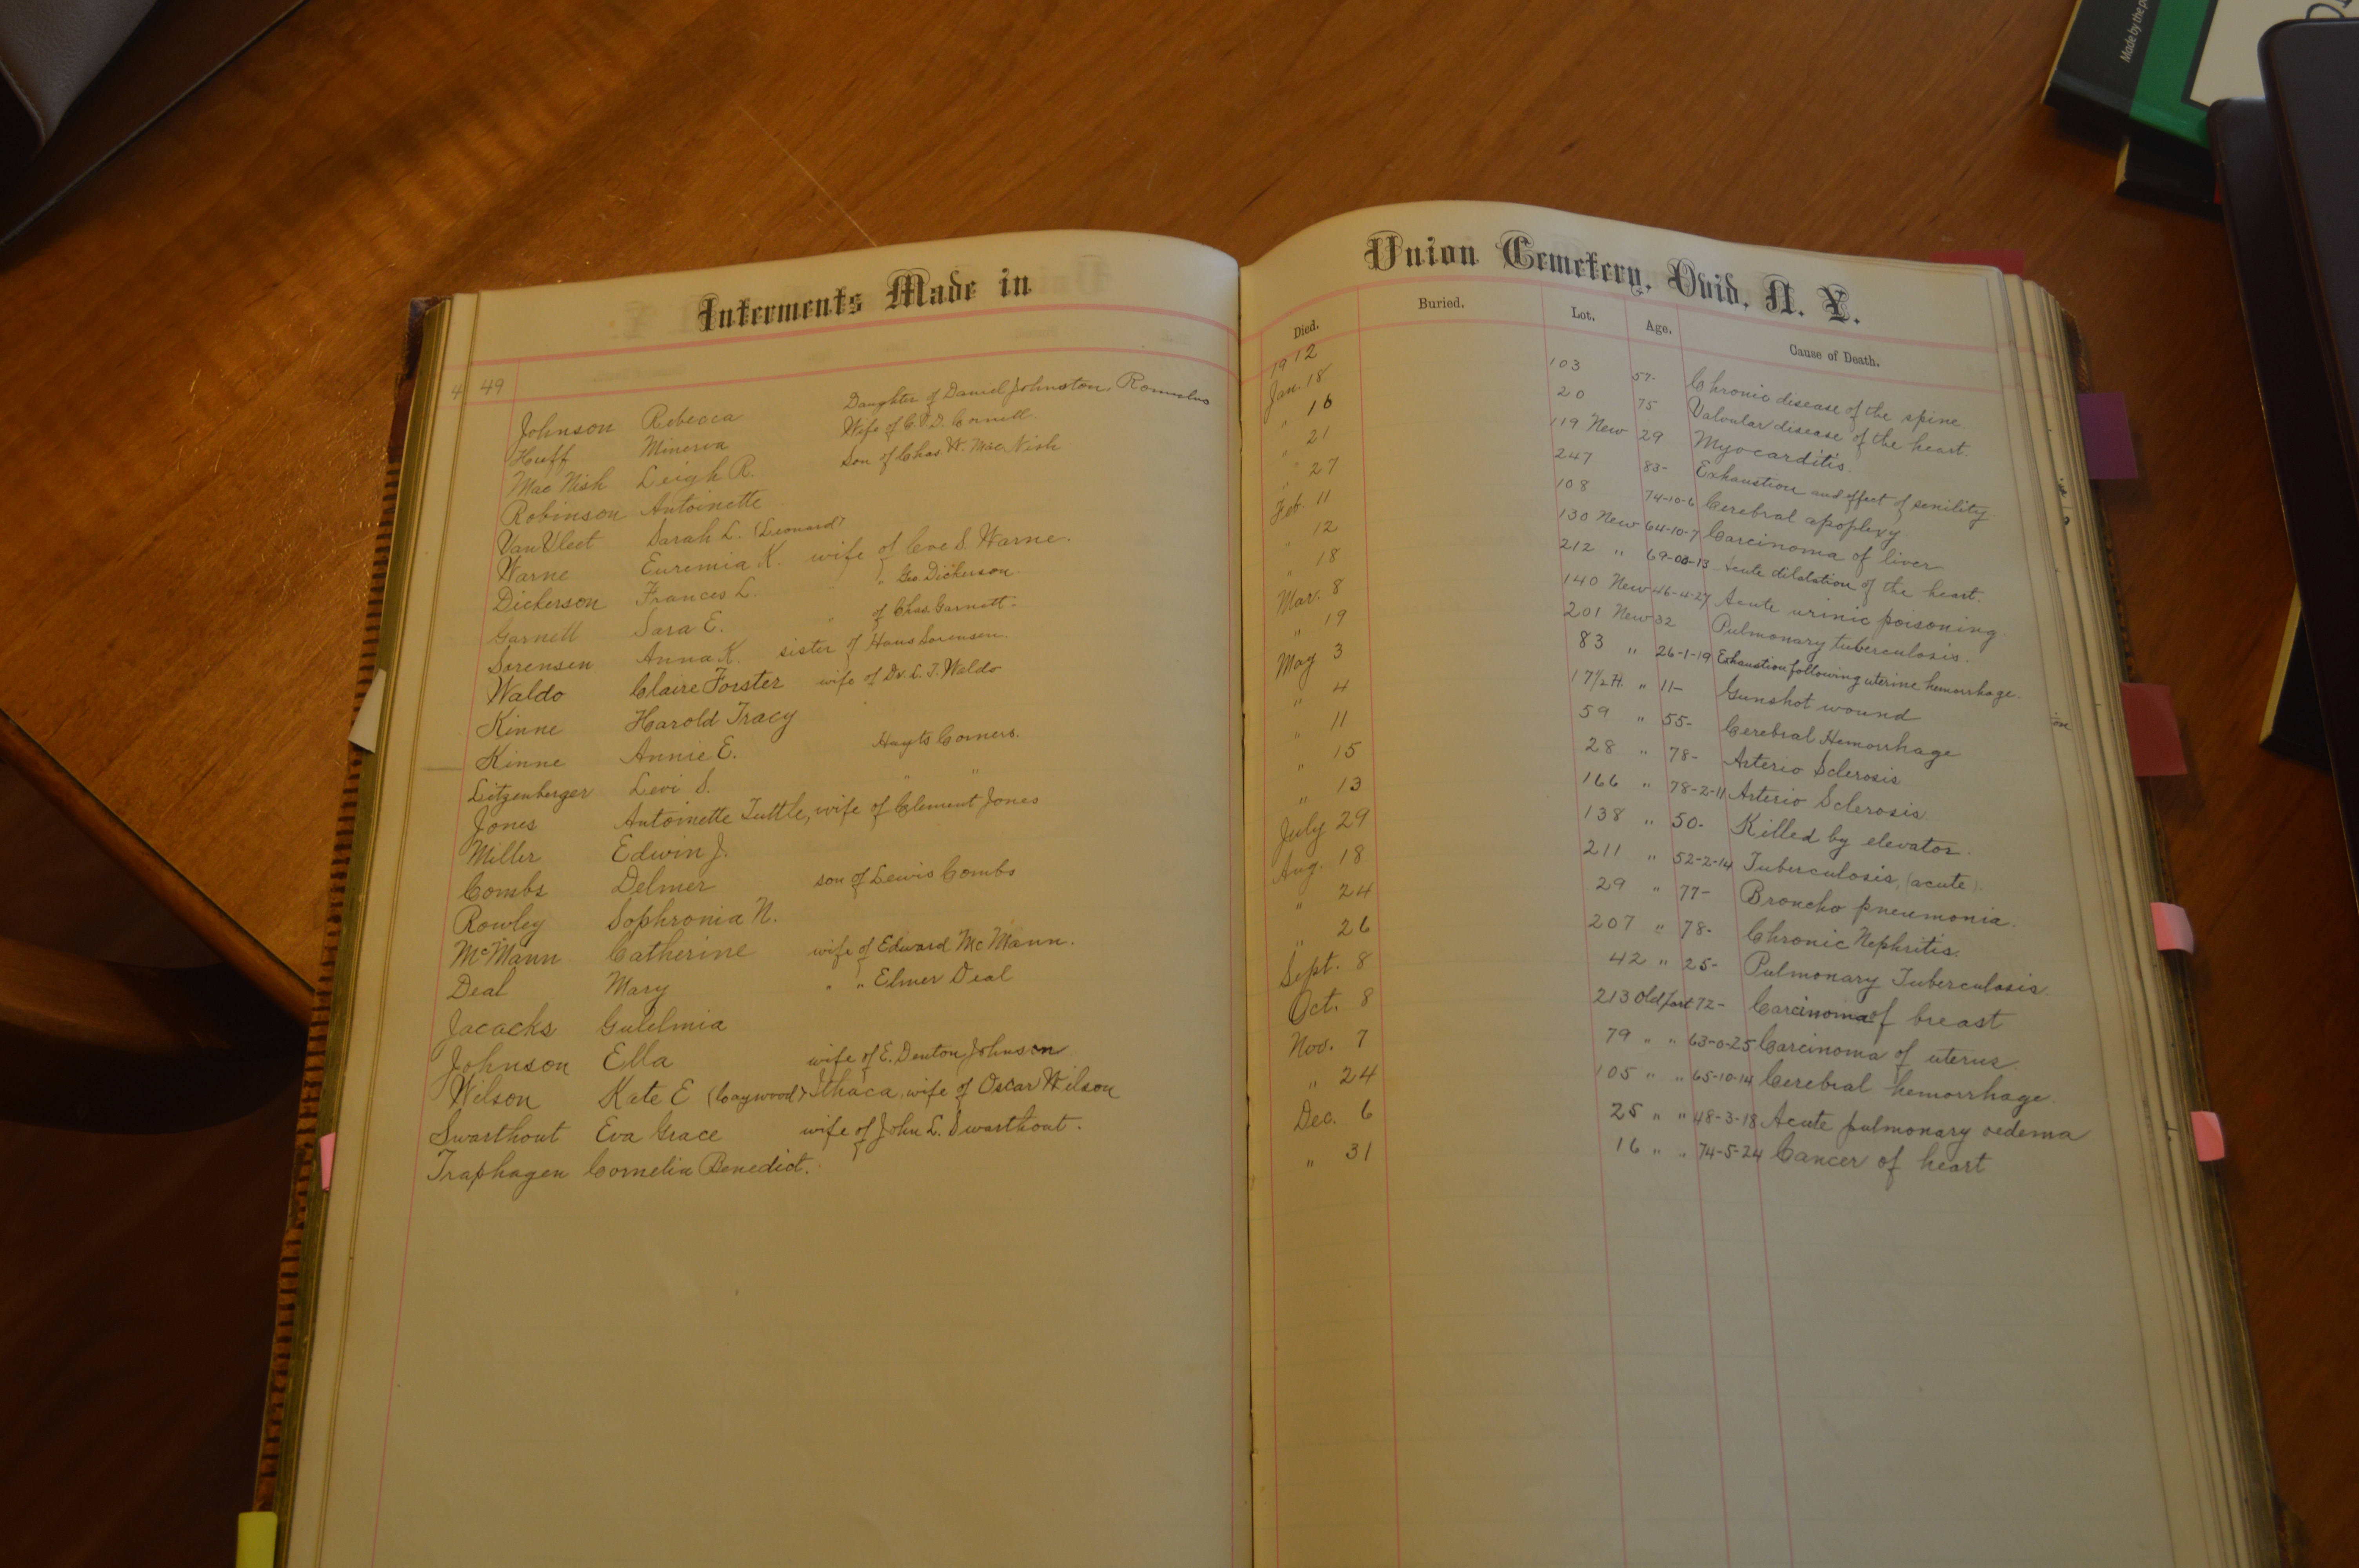 Interments Made in
Union Cemetery, Ovid, N. Y.
Died. Buried. Lot. Age. Cause of Death.
49
1912
Johnson Rebecca Daughter of Daniel Johnston, Romulus Jan. 18 103 57- Chronic disease of the spine
Huff Minerva Wife of C. D. Cornell " 16 20 75 Valvular disease of the heart.
Mac Nish Leigh R. Son of Chas W. Mac Nish " 21 119 New 29 Myocarditis.
Robinson Antoinette " 27 247 83- Exhaustion and effect of senility
VanVleet Sarah L. (Leonard) Feb. 11 108 74-10-6 Cerebral apoplexy
Warne Euremia K. wife of Coe S. Warne. " 12 130 New 64-10-7 Carcinoma of liver
Dickerson Frances L. " " Geo. Dickerson " 18 212 " 69-00-13 Acute dilatation of the heart.
Garnett Sara E. " of Chas. Garnett. Mar. 8 140 New 46-4-27 Acute urinic poisoning
Sorensen Anna K. sister of Hans Sorensen. " 19 201 New 32 Pulmonary tuberculosis.
Waldo Claire Forster wife of Dr. L. T. Waldo May 3 83 " 26-1-19 Exhaustion following uterine hemorrhage.
Kinne Harold Tracy " 4 17 1/2 H. " 11- Gunshot wound
Kinne Annie E. Hayts Corners. " 11 59 " 55- Cerebral Hemorrhage
Litzenberger Levi S. " " " 15 28 " 78- Arterio Sclerosis
Jones Antoinette Tuttle, wife of Clement Jones " 13 166 " 78-2-11 Arterio Sclerosis
Miller Edwin J. July 29 138 " 50- Killed by elevator.
Combs Delmer son of Lewis Combs Aug. 18 211 " 52-2-14 Tuberculosis, (acute).
Rowley Sophronia N. " 24 29 " 77- Broncho pneumonia.
McMann Catherine wife of Edward McMann. " 26 207 " 78- Chronic Nephritis.
Deal Mary " " Elmer Deal Sept. 8 42 " 25- Pulmonary Tuberculosis.
Jacacks Gulelmia Oct. 8 213 Old part 72- Carcinoma of breast
Johnson Ella wife of E. Denton Johnson Nov. 7 79 " " 63-0-25 Carcinoma of uterus.
Wilson Kate E (Caywood) Ithaca, wife of Oscar Wilson " 24 105 " " 65-10-14 Cerebral hemorrhage.
Swarthout Eva Grace wife of John L. Swarthout. Dec. 6 25 " " 48-3-18 Acute pulmonary oedema
Traphagen Cornelia Benedict. " 31 16 " " 74-5-24 Cancer of heart